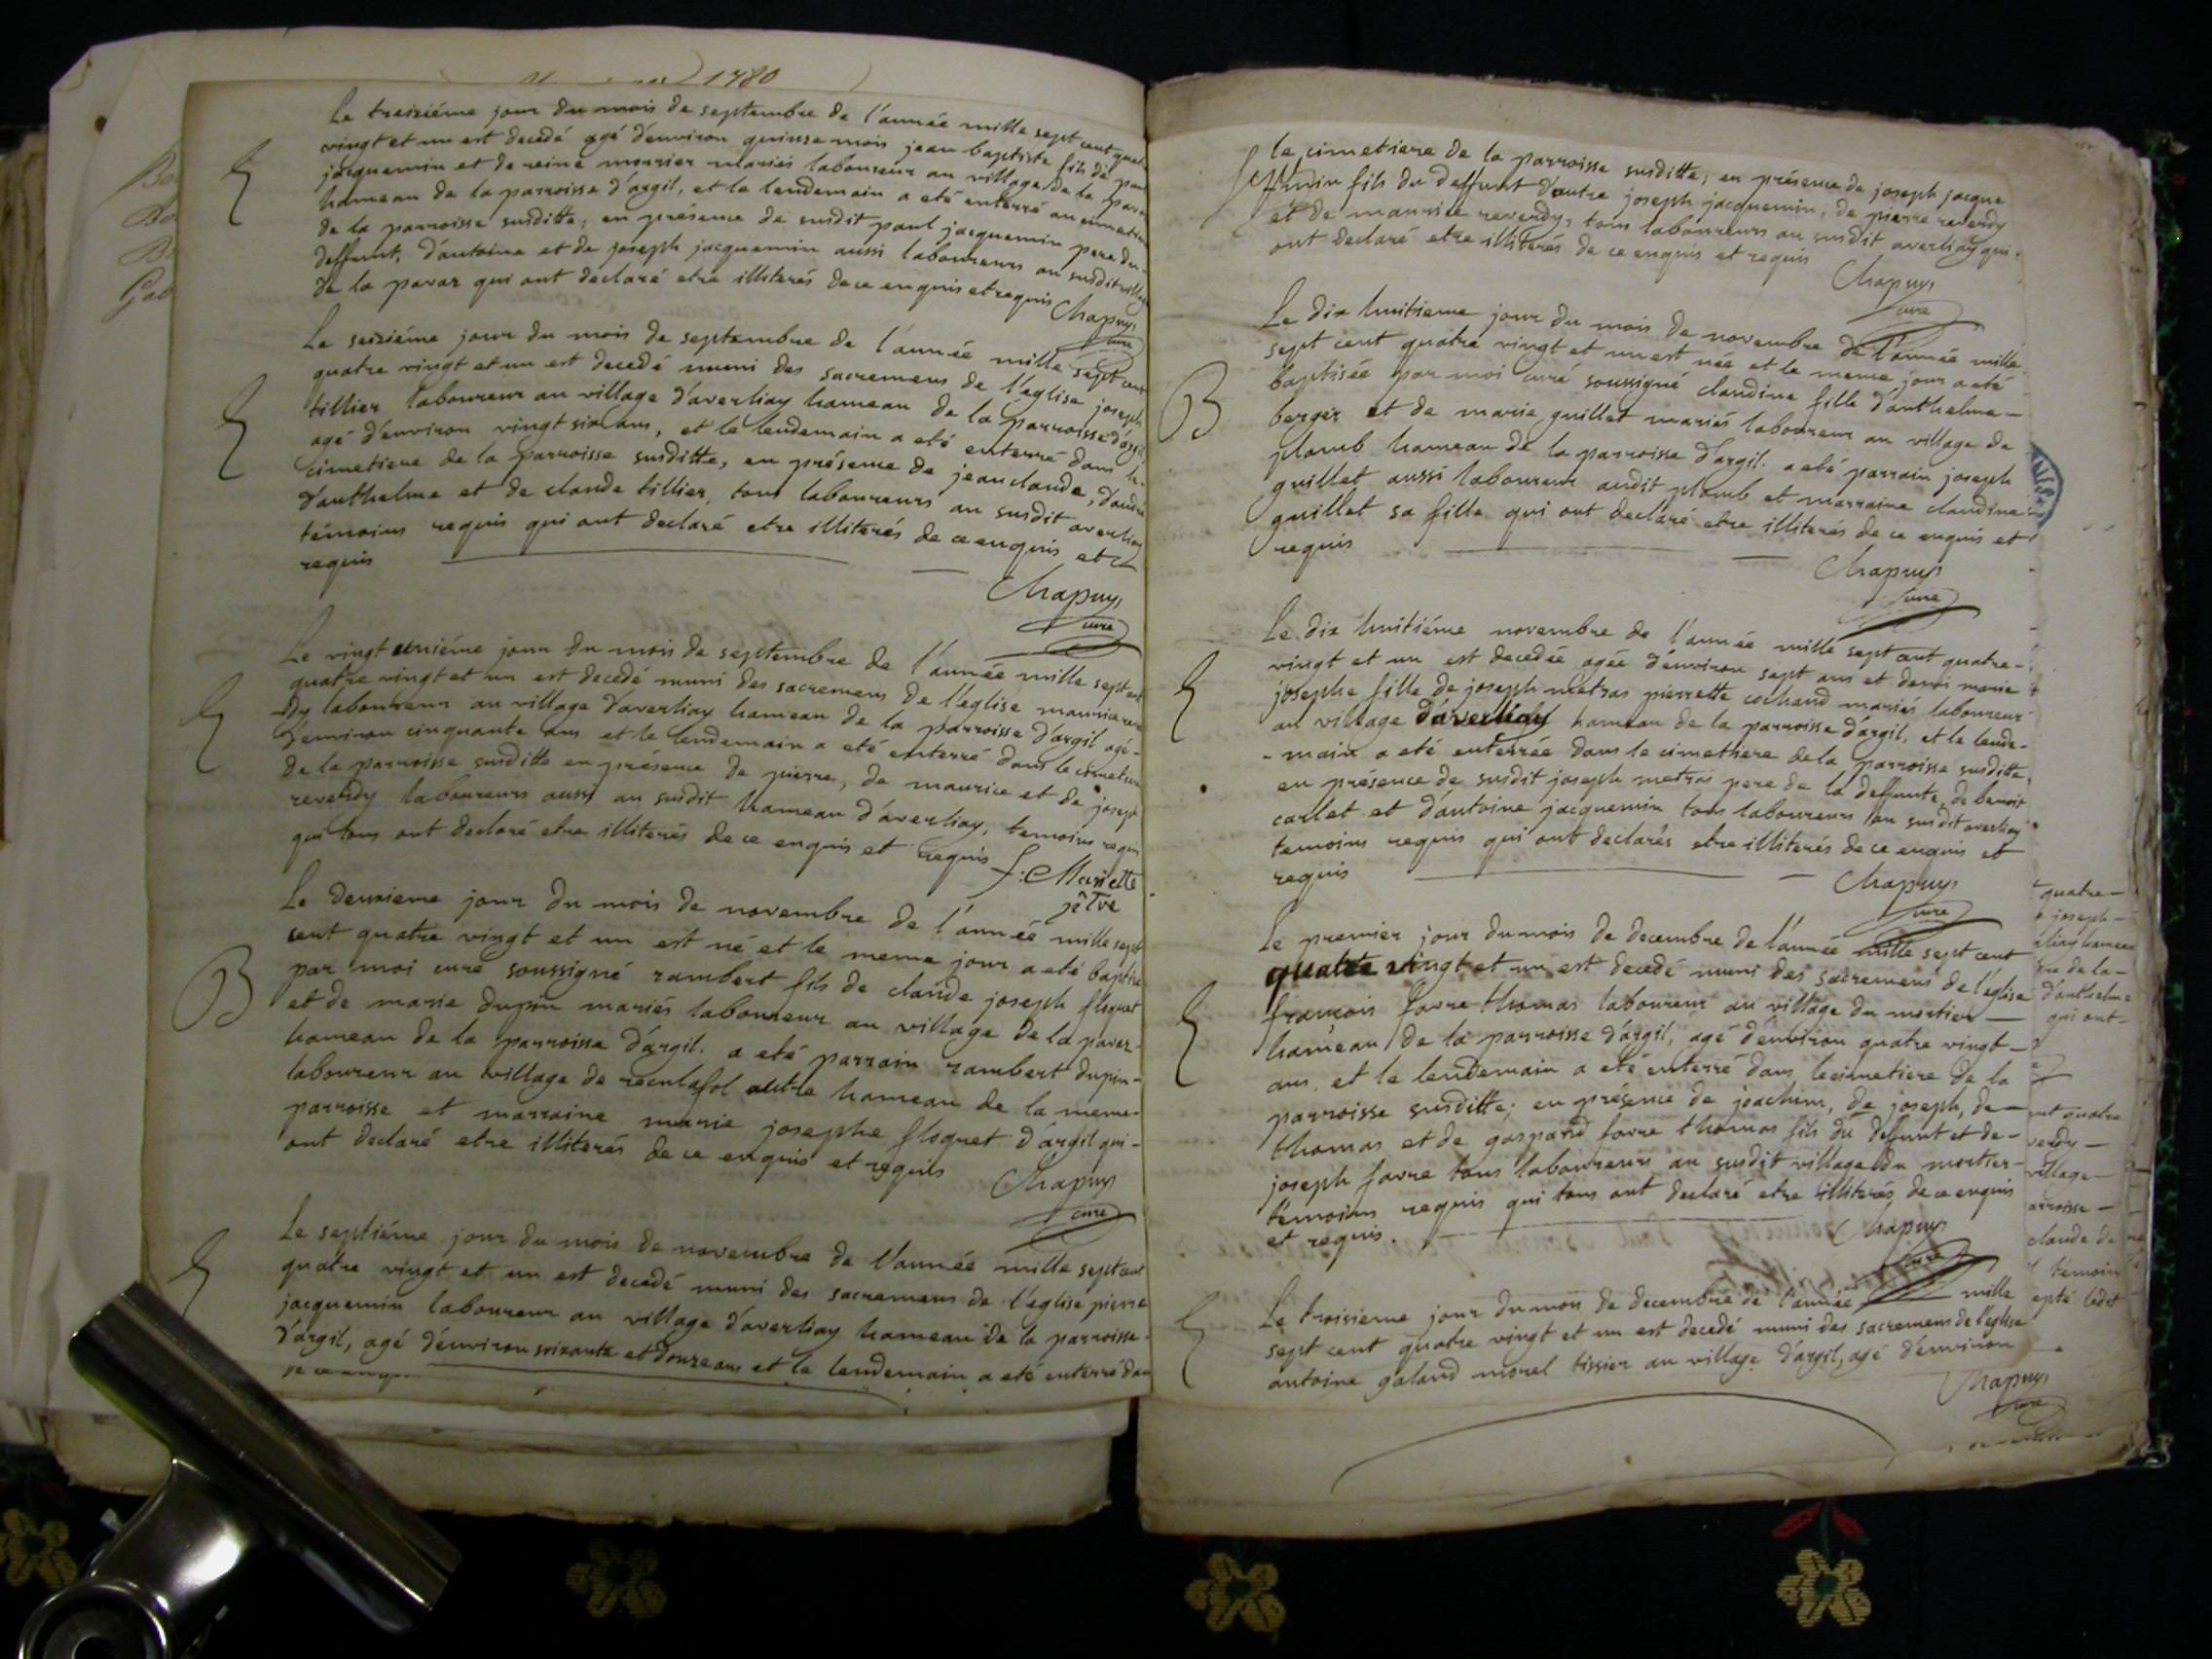 1780
Le treiziéme jour du mois de septembre de l'année mille sept cent quatre
vingt et un est decedé agé d'environ quinze mois jean baptiste fils de paul
jacquemin et de reine morrier mariés laboureur au village de la pavaz
hameau de la parroisse d'argil, et le lendemain a eté enterré au cimetiere
de la parroisse susditte, en présence de susdit paul jacquemin pere du
deffunt, d'antoine et de joseph jacquemin aussi laboureurs au susdit village
de la pavaz qui ont déclaré etre illiterés de ce enquis et requis
Chapuys
curé
Le seiziéme jour du mois de septembre de l'année mille sept cent
quatre vingt et un est decedé muni des sacremens de l'église joseph
tillier laboureur au village d'averliay hameau de la parroisse d'argil
agé d'environ vingt six ans, et le lendemain a eté enterré dans le
cimetiere de la parroisse susditte, en présence de jean claude, d'andré
d'anthelme et de claude tillier, tous laboureurs au susdit averliay
témoins requis qui ont declaré etre illiterés de ce enquis et
requis
Chapuys
curé
Le vingt uniéme jour du mois de septembre de l'année mille sept cent
quatre vingt et un est decedé muni des sacremens de l'eglise maurice rever
-dy laboureur au village d'averliay hameau de la parroisse d'argil agé-
d'environ cinquante ans et le lendemain a eté enterré dans le cimetiere
de la parroisse susditte en présence de pierre, de maurice et de joseph
reverdy laboureurs aussi au susdit hameau d'averliay, temoins requis
qui tous ont declaré etre illiterés de ce enquis et requis
f: Mariette
pêtre
Le deuxieme jour du mois de novembre de l'année mille sept
cent quatre vingt et un est né et le meme jour a eté baptisé
B par moi curé soussigné rambert fils de claude joseph floquet
et de marie dupin mariés laboureur au village de la pavaz-
hameau de la parroisse d'argil. a eté parrain rambert dupin-
laboureur au village de reculafol autre hameau de la meme-
parroisse et marraine marie josephe floquet d'argil qui-
ont declaré etre illiterés de ce enquis et requis
Chapuys
curé
Le septiéme jour du mois de novembre de l'année mille sept cent
quatre vingt et un est decedé muni des sacremens de l'eglise pierre
jacquemin laboureur au village d'averliay hameau de la parroisse-
d'argil, agé d'environ soixante et douze ans et le lendemain a eté enterré dans
le cimetiere de la parroisse susditte; en présence de joseph jacque
-min fils du deffunt d'autre joseph jacquemin, de pierre reverdy
et de maurice reverdy, tous laboureurs au susdit averliay qui-
ont declaré etre illiterés de ce enquis et requis
Chapuys
curé
Le dix huitieme jour du mois de novembre de l'année mille
sept cent quatre vingt et un est née et le meme jour a eté
B baptisée par moi curé soussigné claudine fille d'anthelme-
berger et de marie guillet mariés laboureur au village de
plomb hameau de la parroisse d'argil. a eté parrain joseph
guillet aussi laboureur audit plomb et marraine claudine-
guillet sa fille qui ont declaré etre illiterés de ce enquis et
requis
Chapuys
curé
Le dix huitiéme novembre de l'année mille sept cent quatre-
vingt et un est decedée agée d'environ sept ans et demi marie
josephe fille de joseph metras pierrette cochand mariés laboureur
au village d'averliay hameau de la parroisse d'argil, et le lende-
-main a eté enterrée dans le cimethere de la parroisse susditte,
en présence de susdit joseph metras pere de la deffunte, de benoit
carlet et d'antoine jacquemin tous laboureurs au susdit averliay
temoins requis qui ont declarés etre illiterés de ce enquis et
requis
Chapuys
curé
Le premier jour du mois de decembre de l'année mille sept cent
quatre vingt et un est decedé muni des sacremens de l'eglise
françois favre thomas laboureur au village du mortier-
hameau de la parroisse d'argil, agé d'environ quatre vingt-
ans, et le lendemain a eté enterré dans le cimetiere de la
parroisse susditte; en présence de joachim, de joseph, de-
thomas et de gaspard favre thomas fils du defunt et de-
joseph favre tous laboureurs au susdit village du mortier-
témoins requis qui tous ont declaré etre illiterés, de ce enquis
et requis.
Chapuys
curé
Le troisieme jour du mois de decembre de l'année mille
sept cent quatre vingt et un est decedé muni des sacremens de l'eglise
antoine galand morel tissier au village d'argil, agé d'environ
Chapuys
curé
quatre-
joseph-
de la-
d'anthelme
qui ont-
quatre
village-
claude de
temoin